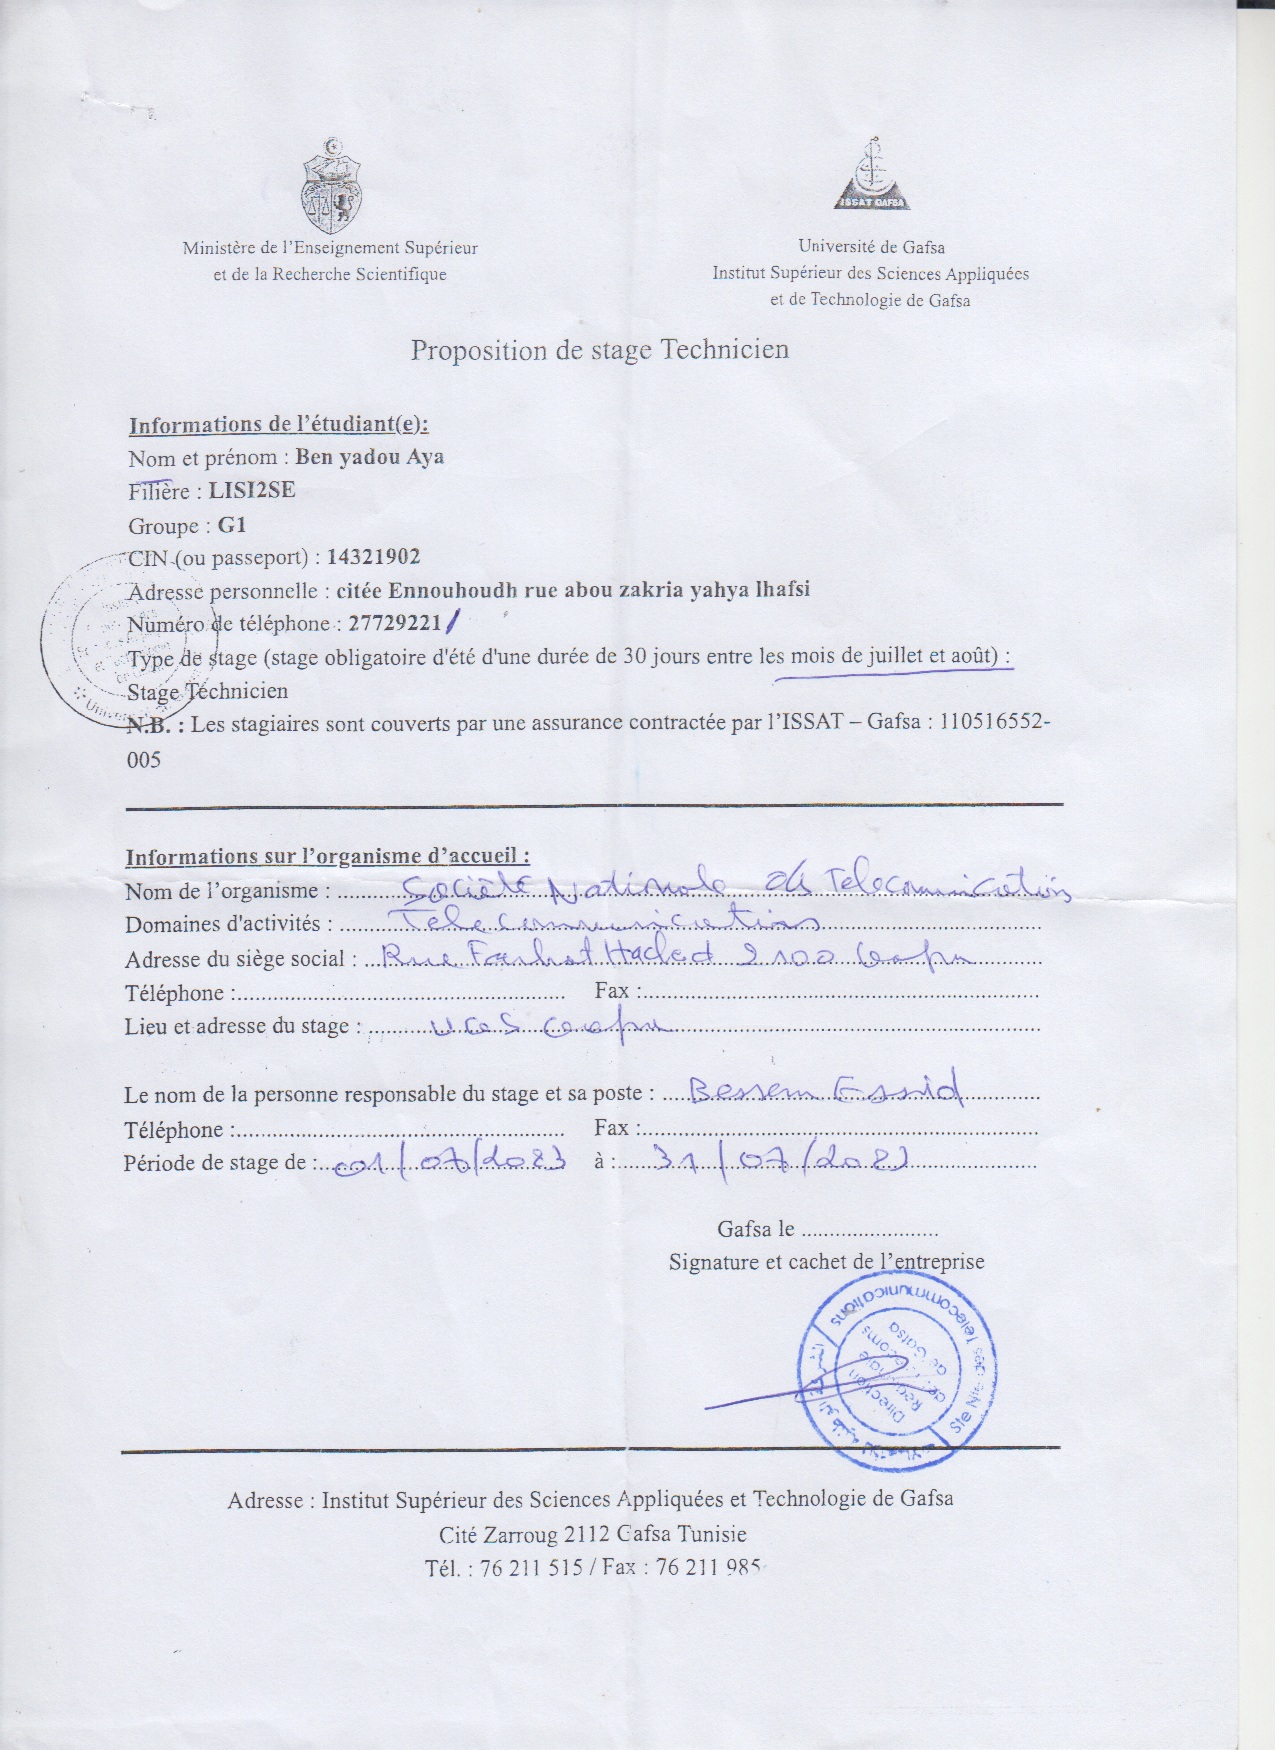 ISSAT GAFSA
Ministère de l'Enseignement Supérieur
et de la Recherche Scientifique
Université de Gafsa
Institut Supérieur des Sciences Appliquées
et de Technologie de Gafsa
Proposition de stage Technicien
Informations de l'étudiant(e):
Nom et prénom : Ben yadou Aya
Filière : LISI2SE
Groupe : G1
CIN (ou passeport) : 14321902
Adresse personnelle : citée Ennouhoudh rue abou zakria yahya lhafsi
Numéro de téléphone : 27729221/
Type de stage (stage obligatoire d'été d'une durée de 30 jours entre les mois de juillet et août) :
Stage Technicien
N.B. : Les stagiaires sont couverts par une assurance contractée par l'ISSAT – Gafsa : 110516552-
005
Informations sur l'organisme d'accueil :
Nom de l'organisme : Société Nationale de Telecomunication
Domaines d'activités : Telecommunications
Adresse du siège social : Rue Farhat Hached 2100 Gafsa
Téléphone : Fax :
Lieu et adresse du stage : Gafsa
Le nom de la personne responsable du stage et sa poste : Bessem Essid
Téléphone : Fax :
Période de stage de : 01/07/2023 à : 31/07/2023
Gafsa le ........................
Signature et cachet de l'entreprise
Ste Nle des Télécommunications
Direction
Régionale
de Gafsa
Adresse : Institut Supérieur des Sciences Appliquées et Technologie de Gafsa
Cité Zarroug 2112 Gafsa Tunisie
Tél. : 76 211 515 / Fax : 76 211 985